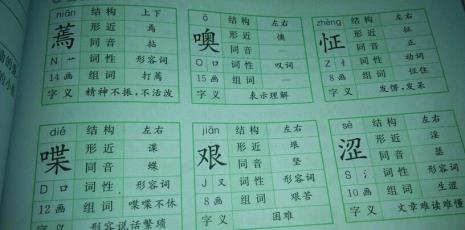 niān 结构 上下
蔫 形近 焉
同音 拈
N 艹 词性 形容词
14画 组词 打蔫
字义 精神不振,不活泼
ō 结构 左右
噢 形近
同音 —
O 口 词性 叹词
15画 组词 —
字义 表示理解
zhèng 结构 左右
怔 形近 征
同音 正
Z 忄 词性 动词
8画 组词 怔住
字义 发愣,发呆
dié 结构 左右
喋 形近 谍
同音 蝶
D 口 词性 形容词
12画 组词 喋喋不休
字义 形容说话繁琐
jiān 结构 左右
艰 形近
同音 坚
J 又 词性 形容词
8画 组词 艰苦
字义 困难
sè 结构 左右
涩 形近
同音
S 氵 词性 形容词
10画 组词 生涩
字义 文章难读难懂